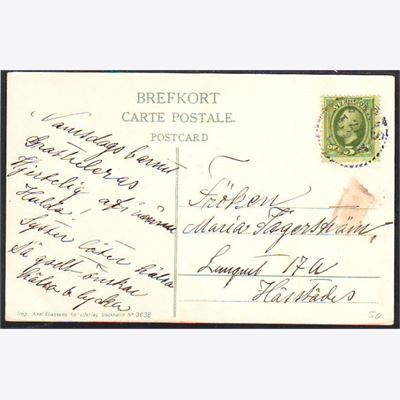 BREFKORT
CARTE POSTALE.
POSTCARD
Namsdags barnet
Gratuleras
Hjertelig af vännen
Hulda!
Syster låter hälsa
Så godt önskar
Hälsa & lycka
Fröken
Maria Fagerström,
17 A
Hässtads
Imp. Axel Eliassons Konstförlag, Stockholm Nº 3638
50